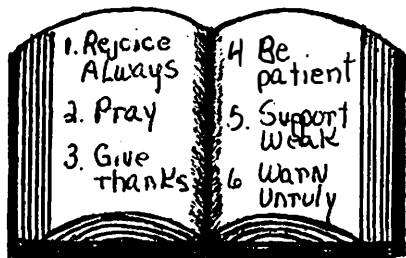 1. Rejoice
Always
2. Pray
3. Give
thanks
4 Be
patient
5. Support
Weak
6 Warn
Unruly